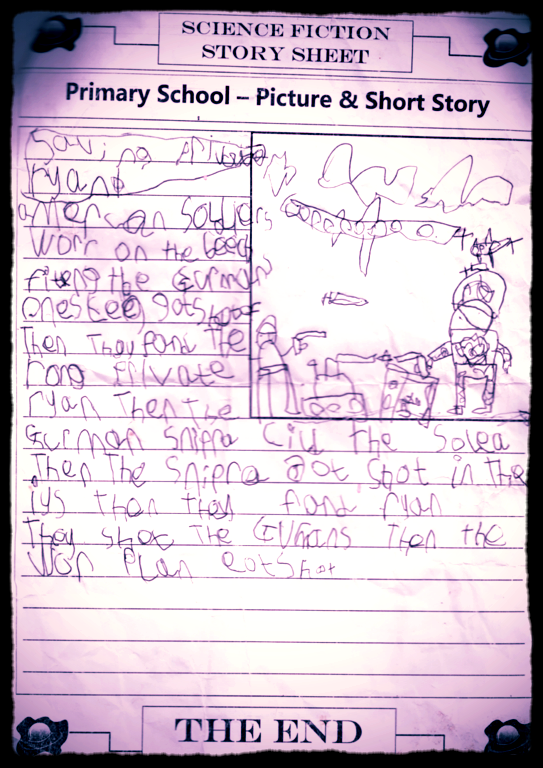 SCIENCE FICTION
STORY SHEET
Primary School – Picture & Short Story
Saving Private
ryan
american Soldiers
Worr on the beech
fiteng the German
Then They fond The
rong Private
ryan Then The
German Snipra Cild The Solea
Then The Snipra Got Shot in The
iys Then they fond ryan
They Shot The Then the
Wor Plan Shot
THE END